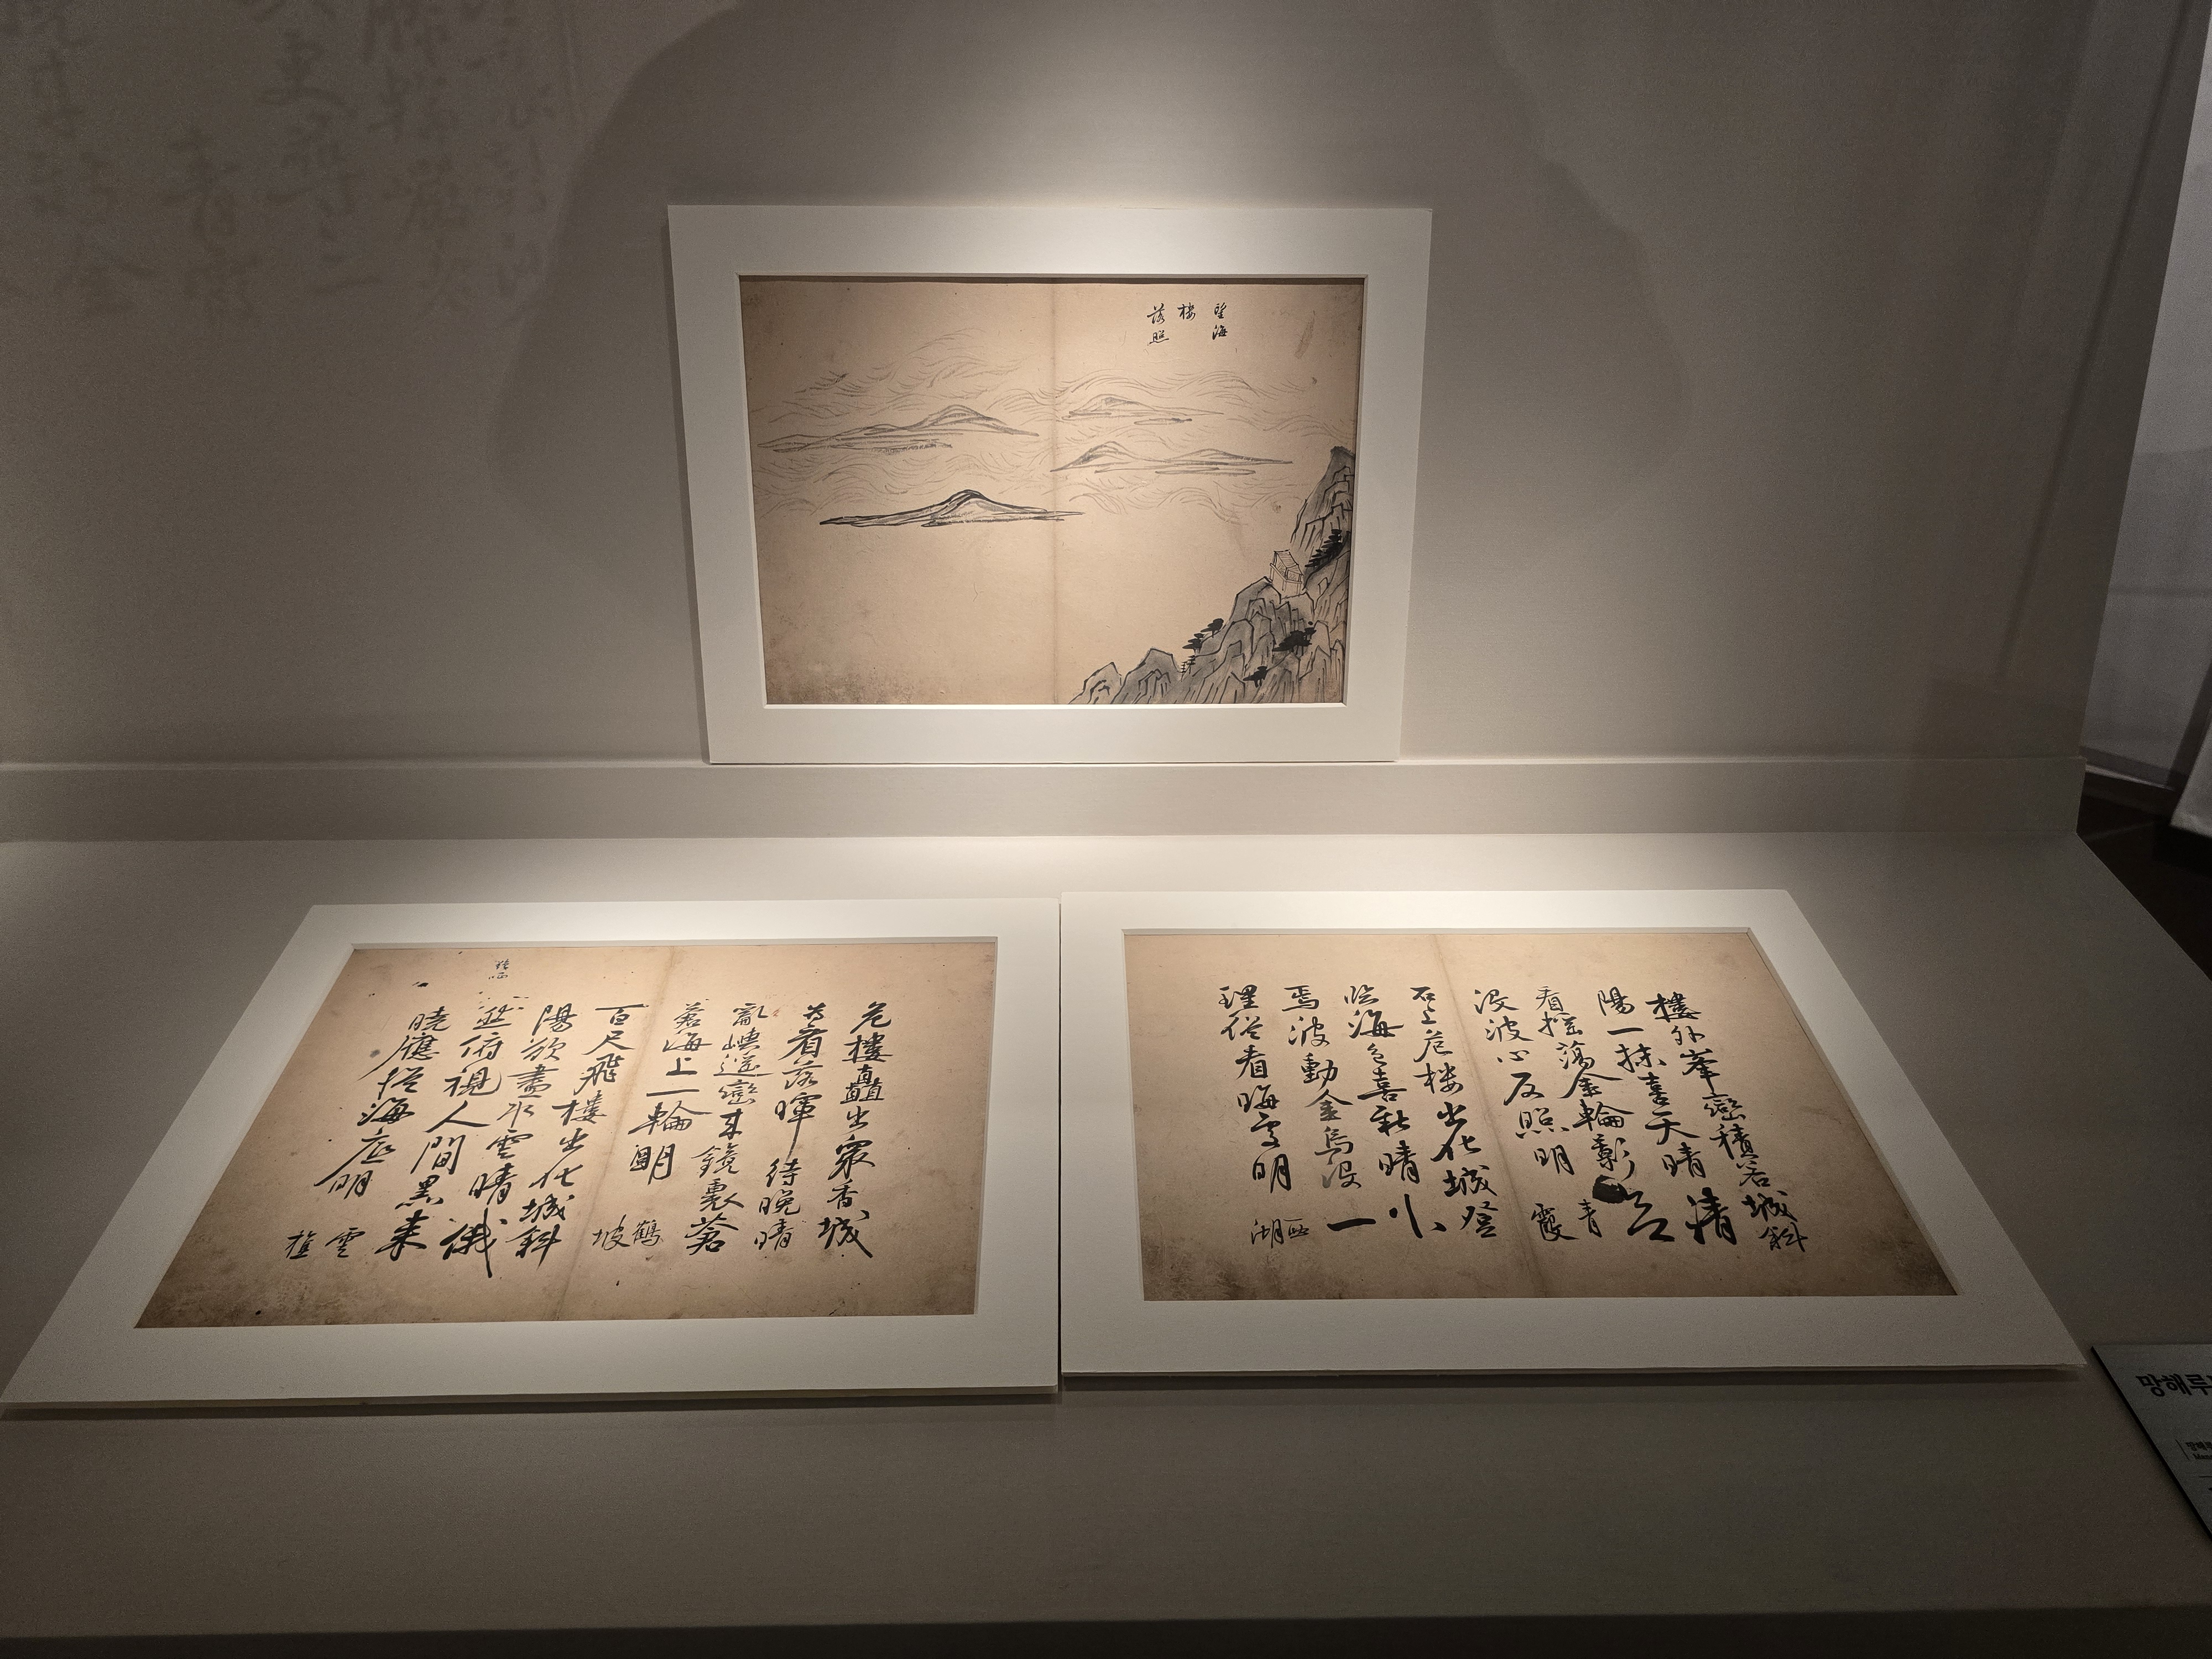 望海
楼
落照
樓外峯巒積若城斜
陽一抹喜天晴清
看搖蕩金輪影
没波心反照明
青霞
石上危楼出化城登
臨海色喜新晴小
焉波動金烏没一
理俗看晦明
西湖
危樓矗出衆香城
為看落暉待晚晴
亂嶼遥巒来鏡裏蒼
蒼海上一輪明
鶴坡
百尺飛樓出化城斜
陽欲盡水雲晴俄
俯視人間黑来
曉應從海底明
雲樵
망해루